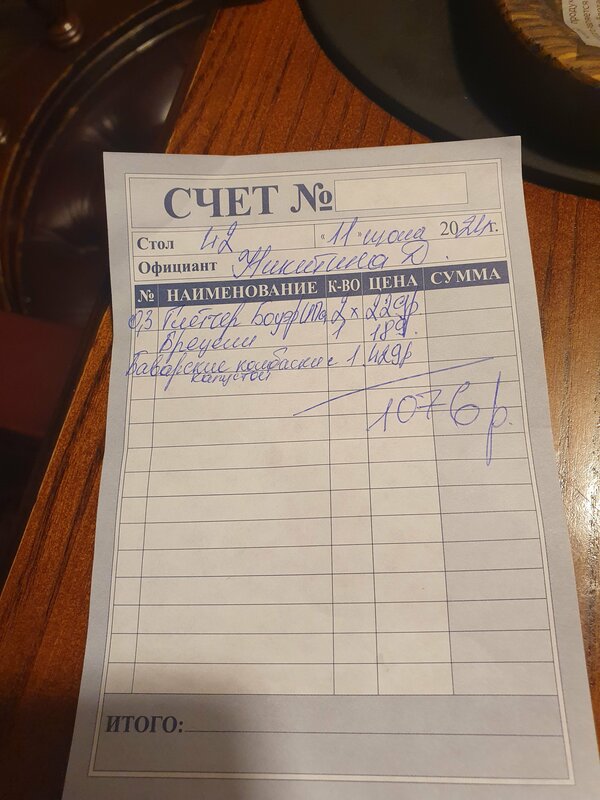 СЧЕТ №
Стол 42 «11» июля 2021г.
Официант Никитина Д.
№ НАИМЕНОВАНИЕ К-ВО ЦЕНА СУММА
0,3 Плётчер Боуэр ИПа 2 x 229р
Брецели 1 189.
Баварские колбаски с 1 429р
капустой
1076р.
ИТОГО: